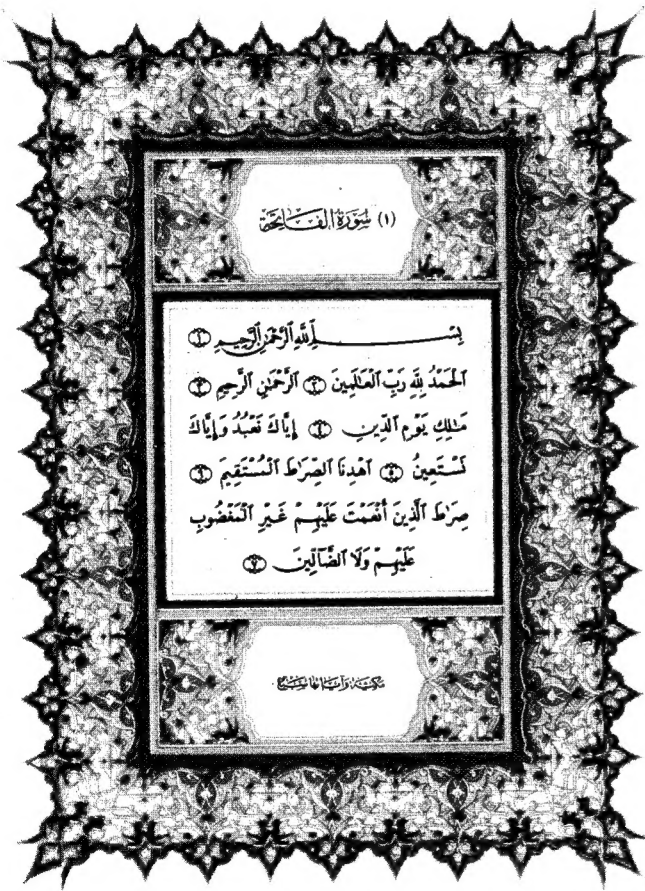 (١) سُورَةُ الفَاتِحَة
بِسْمِ اللَّهِ الرَّحْمَٰنِ الرَّحِيمِ ١
الْحَمْدُ لِلَّهِ رَبِّ الْعَالَمِينَ ٢ الرَّحْمَٰنِ الرَّحِيمِ ٣
مَالِكِ يَوْمِ الدِّينِ ٤ إِيَّاكَ نَعْبُدُ وَإِيَّاكَ
نَسْتَعِينُ ٥ اهْدِنَا الصِّرَاطَ الْمُسْتَقِيمَ ٦
صِرَاطَ الَّذِينَ أَنْعَمْتَ عَلَيْهِمْ غَيْرِ الْمَغْضُوبِ
عَلَيْهِمْ وَلَا الضَّالِّينَ ٧
مكيّة وآياتها سبع